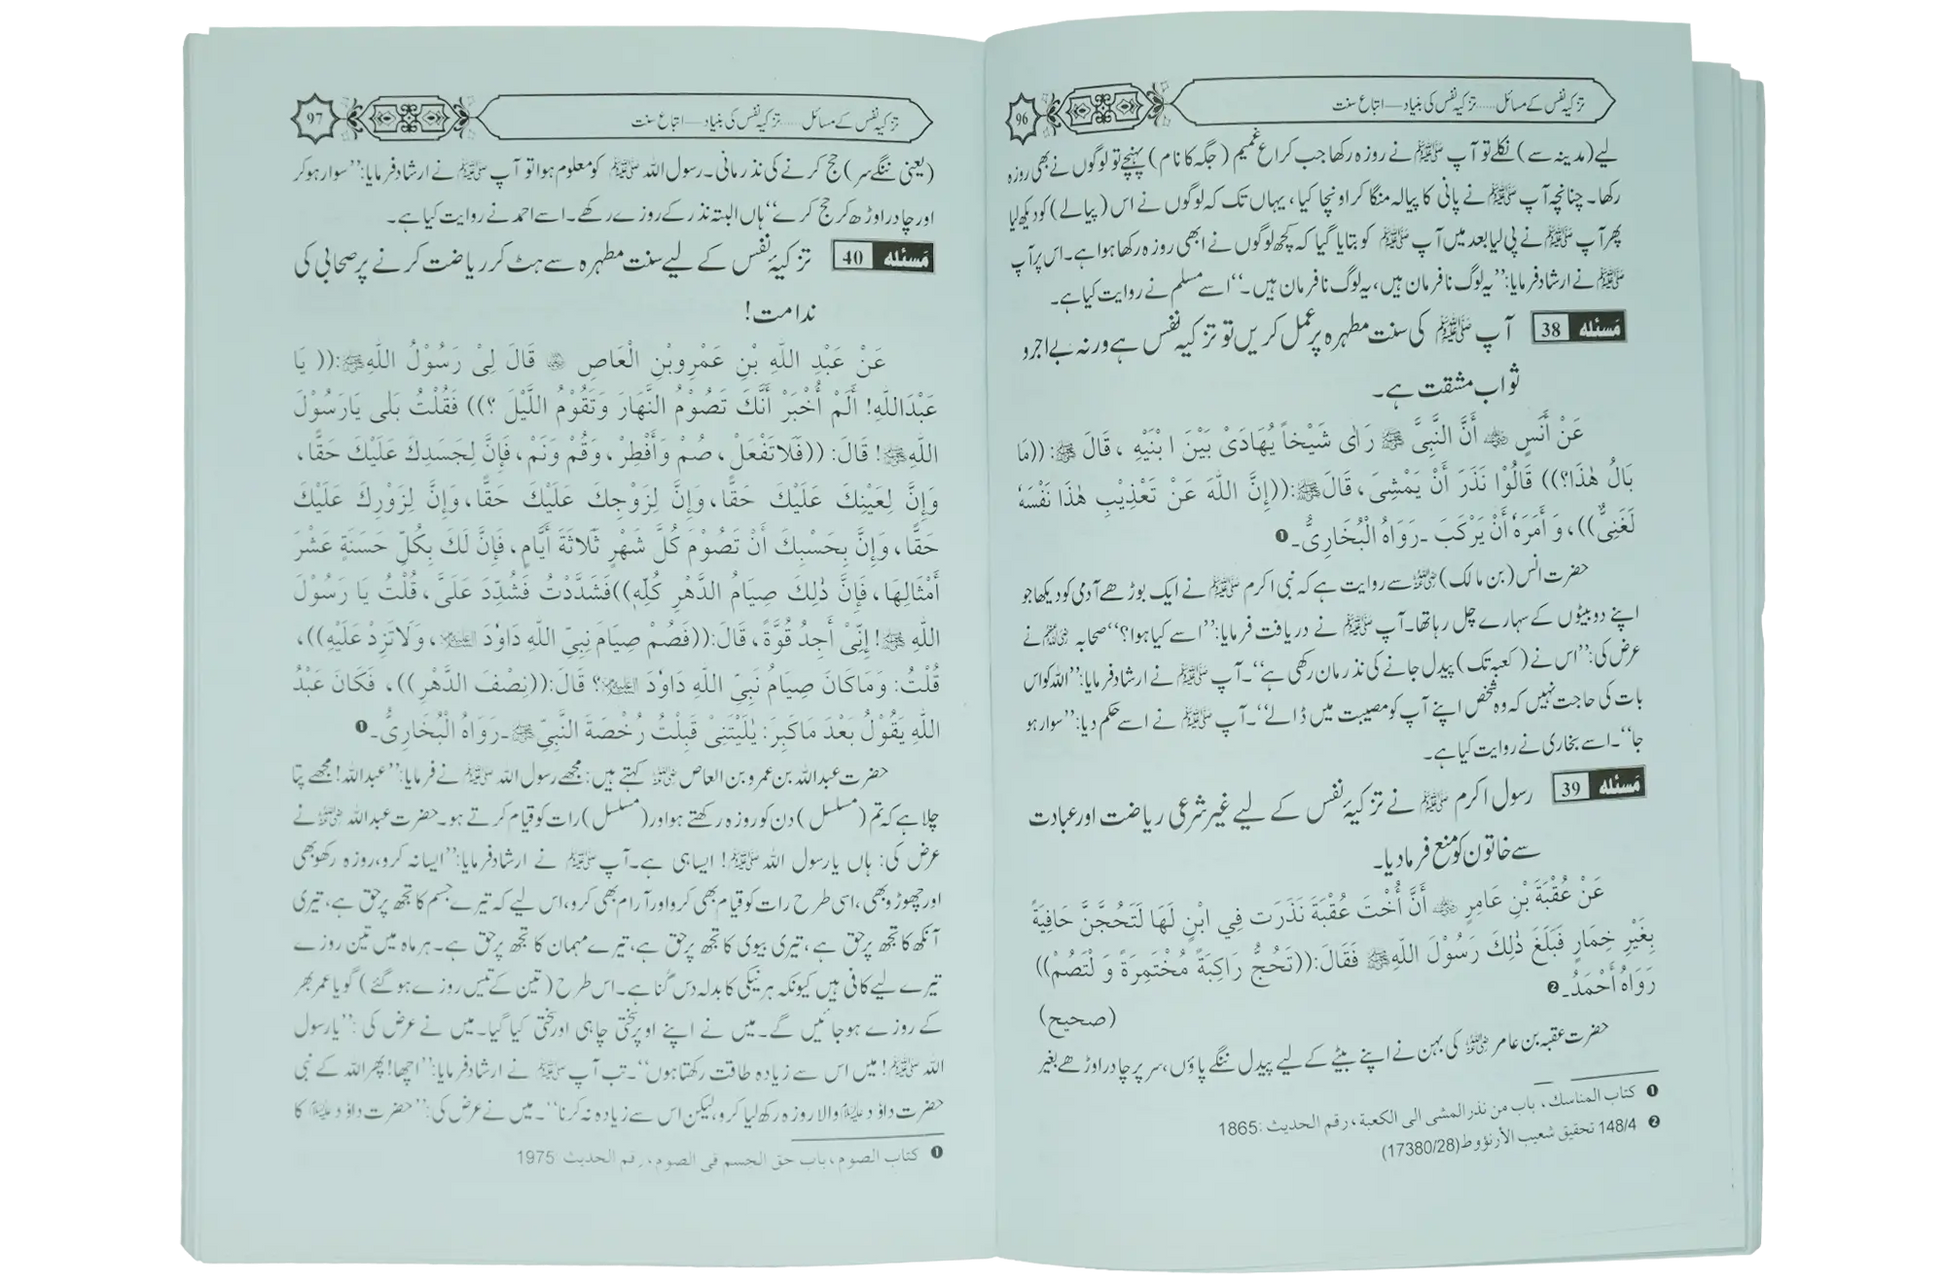 تزکیہ نفس کے مسائل ..... تزکیہ نفس کی بنیاد — اتباع سنت
96
لیے (مدینہ سے) نکلے تو آپ ﷺ نے روزہ رکھا جب کراع غمیم (جگہ کا نام) پہنچے تو لوگوں نے بھی روزہ
رکھا۔ چنانچہ آپ ﷺ نے پانی کا پیالہ منگا کر اونچا کیا، یہاں تک کہ لوگوں نے اس (پیالے) کو دیکھ لیا
پھر آپ ﷺ نے پی لیا بعد میں آپ ﷺ کو بتایا گیا کہ کچھ لوگوں نے ابھی روزہ رکھا ہوا ہے۔ اس پر آپ
ﷺ نے ارشاد فرمایا: ’’یہ لوگ نافرمان ہیں، یہ لوگ نافرمان ہیں۔‘‘ اسے مسلم نے روایت کیا ہے۔
مَسئلہ 38 آپ ﷺ کی سنت مطہرہ پر عمل کریں تو تزکیہ نفس ہے ورنہ بے اجر و
ثواب مشقت ہے۔
عَنْ أَنَسٍ ؓ أَنَّ النَّبِیَّ ﷺ رَاٰی شَیْخاً یُهَادَیٰ بَیْنَ ابْنَیْهِ ، قَالَ ﷺ :((مَا
بَالُ هٰذَا؟)) قَالُوْا نَذَرَ أَنْ یَمْشِیَ ، قَالَ ﷺ :((إِنَّ اللّٰهَ عَنْ تَعْذِیْبِ هٰذَا نَفْسَهٗ
لَغَنِیٌّ))، وَ أَمَرَهٗ أَنْ یَرْکَبَ ۔ رَوَاهُ الْبُخَارِیُّ۔ ❶
حضرت انس (بن مالک) ؓ سے روایت ہے کہ نبی اکرم ﷺ نے ایک بوڑھے آدمی کو دیکھا جو
اپنے دو بیٹوں کے سہارے چل رہا تھا۔ آپ ﷺ نے دریافت فرمایا: ’’اسے کیا ہوا؟‘‘ صحابہ ؓ نے
عرض کی: ’’اس نے (کعبہ تک) پیدل جانے کی نذر مان رکھی ہے‘‘۔ آپ ﷺ نے ارشاد فرمایا: ’’اللہ کو اس
بات کی حاجت نہیں کہ وہ شخص اپنے آپ کو مصیبت میں ڈالے‘‘۔ آپ ﷺ نے اسے حکم دیا: ’’سوار ہو
جا‘‘۔ اسے بخاری نے روایت کیا ہے۔
مَسئلہ 39 رسول اکرم ﷺ نے تزکیۂ نفس کے لیے غیر شرعی ریاضت اور عبادت
سے خاتون کو منع فرما دیا۔
عَنْ عُقْبَةَ بْنِ عَامِرٍ ؓ أَنَّ أُخْتَ عُقْبَةَ نَذَرَت فِي ابْنٍ لَهَا لَتَحُجَّنَّ حَافِیَةً
بِغَیْرِ خِمَارٍ فَبَلَغَ ذٰلِكَ رَسُوْلَ اللّٰهِ ﷺ فَقَالَ:((تَحُجُّ رَاكِبَةً مُخْتَمِرَةً وَ لْتَصُمْ))
رَوَاهُ أَحْمَدُ۔ ❷
(صحیح)
حضرت عقبہ بن عامر ؓ کی بہن نے اپنے بیٹے کے لیے پیدل ننگے پاؤں، سر پر چادر اوڑھے بغیر
❶ کتاب المناسک ، باب من نذر المشی الی الکعبة ، رقم الحدیث :1865
❷ 148/4 تحقیق شعیب الأرنؤوط (17380/28)
تزکیہ نفس کے مسائل ..... تزکیہ نفس کی بنیاد — اتباع سنت
97
(یعنی ننگے سر) حج کرنے کی نذر مانی۔ رسول اللہ ﷺ کو معلوم ہوا تو آپ ﷺ نے ارشاد فرمایا: ’’سوار ہو کر
اور چادر اوڑھ کر حج کرے‘‘ ہاں البتہ نذر کے روزے رکھے۔ اسے احمد نے روایت کیا ہے۔
مَسئلہ 40 تزکیۂ نفس کے لیے سنت مطہرہ سے ہٹ کر ریاضت کرنے پر صحابی کی
ندامت!
عَنْ عَبْدِ اللّٰهِ بْنِ عَمْرِوبْنِ الْعَاصِ ؓ قَالَ لِیْ رَسُوْلُ اللّٰهِ ﷺ:(( یَا
عَبْدَاللّٰهِ! أَلَمْ أُخْبَرْ أَنَّكَ تَصُوْمُ النَّهَارَ وَتَقُوْمُ اللَّیْلَ ؟)) فَقُلْتُ بَلٰی یَارَسُوْلَ
اللّٰهِ ﷺ ! قَالَ: ((فَلَاتَفْعَلْ، صُمْ وَأَفْطِرْ، وَقُمْ وَنَمْ، فَإِنَّ لِجَسَدِكَ عَلَیْكَ حَقًّا،
وَإِنَّ لِعَیْنِكَ عَلَیْكَ حَقًّا،وَإِنَّ لِزَوْجِكَ عَلَیْكَ حَقًّا،وَإِنَّ لِزَوْرِكَ عَلَیْكَ
حَقًّا، وَإِنَّ بِحَسْبِكَ أَنْ تَصُوْمَ كُلَّ شَهْرٍ ثَلَاثَةَ أَیَّامٍ، فَإِنَّ لَكَ بِكُلِّ حَسَنَةٍ عَشْرَ
أَمْثَالِهَا، فَإِنَّ ذٰلِكَ صِیَامُ الدَّهْرِ كُلِّهٖ))فَشَدَّدْتُ فَشُدِّدَ عَلَیَّ، قُلْتُ یَا رَسُوْلَ
اللّٰهِ ﷺ ! إِنِّیْ أَجِدُ قُوَّةً، قَالَ:((فَصُمْ صِیَامَ نَبِیِّ اللّٰهِ دَاوٗدَ علیہ السلام، وَلَاتَزِدْ عَلَیْهِ))،
قُلْتُ: وَمَاكَانَ صِیَامُ نَبِیِّ اللّٰهِ دَاوٗدَ علیہ السلام؟ قَالَ:((نِصْفَ الدَّهْرِ))، فَكَانَ عَبْدُ
اللّٰهِ یَقُوْلُ بَعْدَ مَاكَبِرَ: یٰلَیْتَنِیْ قَبِلْتُ رُخْصَةَ النَّبِیِّ ﷺ۔ رَوَاهُ الْبُخَارِیُّ۔ ❶
حضرت عبداللہ بن عمرو بن العاص ؓ کہتے ہیں: مجھے رسول اللہ ﷺ نے فرمایا: ’’عبداللہ! مجھے پتا
چلا ہے کہ تم (مسلسل) دن کو روزہ رکھتے ہو اور (مسلسل) رات کو قیام کرتے ہو۔ حضرت عبداللہ ؓ نے
عرض کی: ہاں یا رسول اللہ ﷺ! ایسا ہی ہے۔ آپ ﷺ نے ارشاد فرمایا: ’’ایسا نہ کرو، روزہ رکھو بھی
اور چھوڑو بھی، اسی طرح رات کو قیام بھی کرو اور آرام بھی کرو، اس لیے کہ تیرے جسم کا تجھ پر حق ہے، تیری
آنکھ کا تجھ پر حق ہے، تیری بیوی کا تجھ پر حق ہے، تیرے مہمان کا تجھ پر حق ہے۔ ہر ماہ میں تین روزے
تیرے لیے کافی ہیں کیونکہ ہر نیکی کا بدلہ دس گنا ہے۔ اس طرح (تین کے تیس روزے ہو گئے) گویا عمر بھر
کے روزے ہو جائیں گے۔ میں نے اپنے اوپر سختی چاہی اور سختی کیا گیا۔ میں نے عرض کی: ’’یا رسول
اللہ ﷺ! میں اس سے زیادہ طاقت رکھتا ہوں‘‘۔ تب آپ ﷺ نے ارشاد فرمایا: ’’اچھا! پھر اللہ کے نبی
حضرت داؤد علیہ السلام والا روزہ رکھ لیا کرو، لیکن اس سے زیادہ نہ کرنا‘‘۔ میں نے عرض کی: ’’حضرت داؤد علیہ السلام کا
❶ کتاب الصوم ، باب حق الجسم فی الصوم ، رقم الحدیث :1975